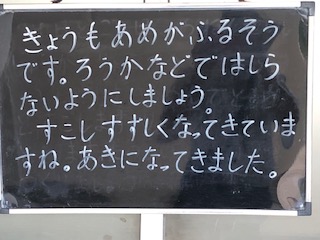 きょうもあめがふるそう
です。ろうかなどではしら
ないようにしましょう。
すこしすずしくなってきていま
すね。あきになってきました。